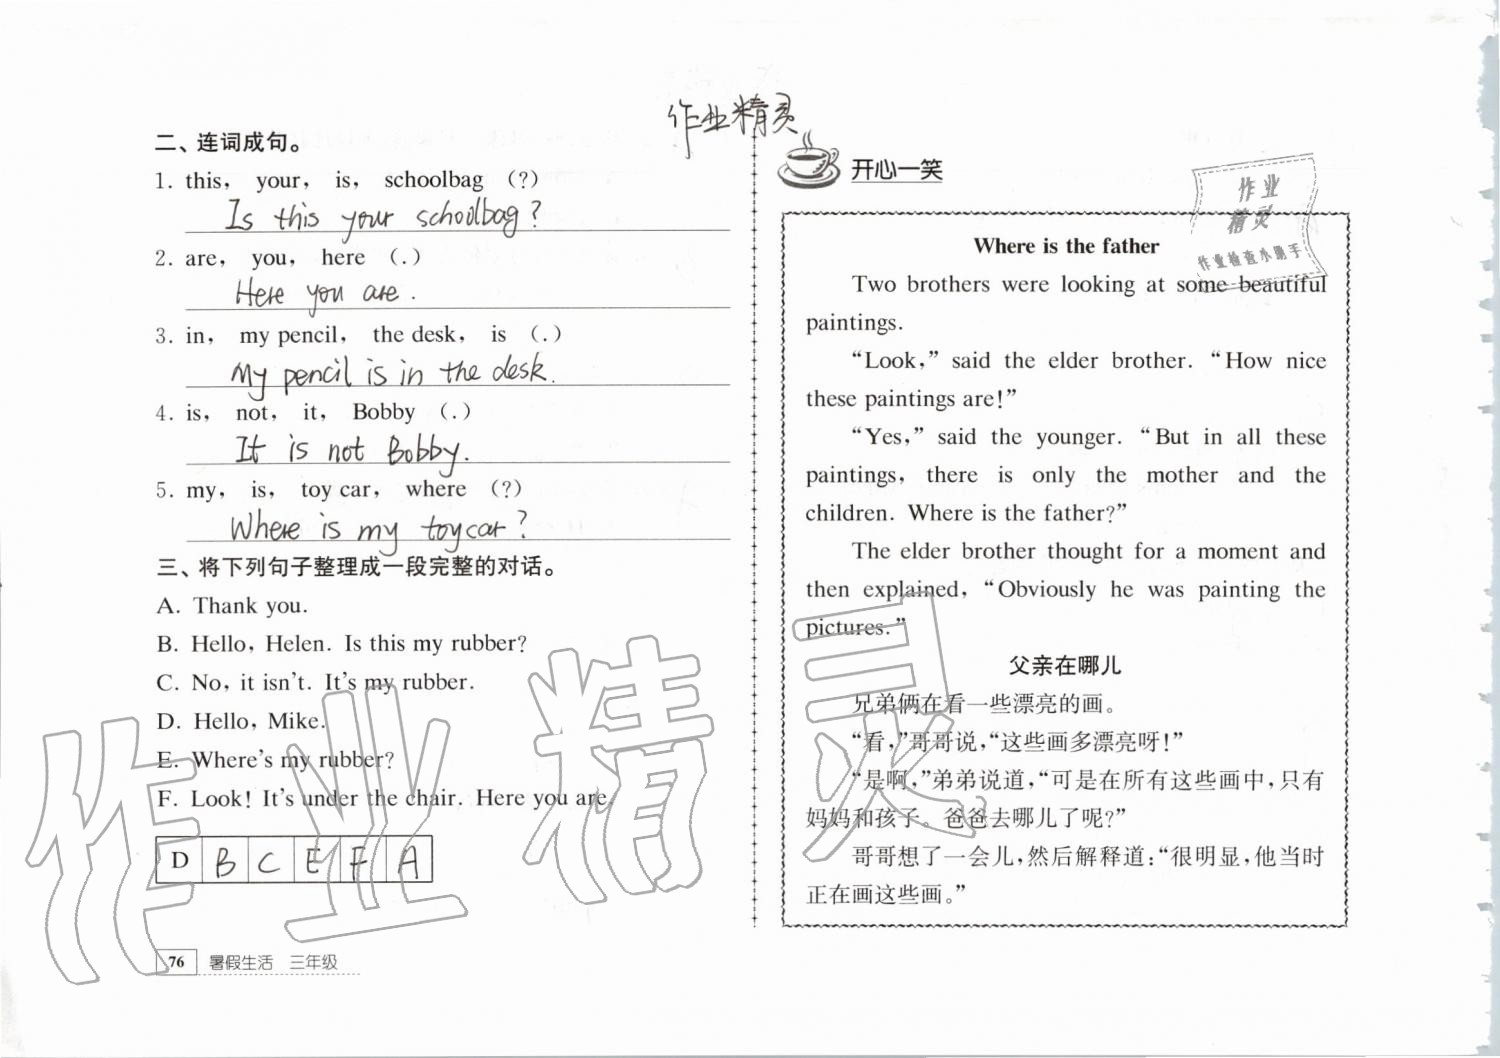 作业精灵
二、连词成句。
1. this， your， is， schoolbag （?）
Is this your schoolbag?
2. are， you， here （.）
Here you are.
3. in， my pencil， the desk， is （.）
My pencil is in the desk.
4. is， not， it， Bobby （.）
It is not Bobby.
5. my， is， toy car， where （?）
Where is my toy car?
三、将下列句子整理成一段完整的对话。
A. Thank you.
B. Hello, Helen. Is this my rubber?
C. No, it isn't. It's my rubber.
D. Hello, Mike.
E. Where's my rubber?
F. Look! It's under the chair. Here you are.
D B C E F A
76 暑假生活 三年级
开心一笑
作业
精灵
作业检查小助手
Where is the father
Two brothers were looking at some beautiful
paintings.
“Look,” said the elder brother. “How nice
these paintings are!”
“Yes,” said the younger. “But in all these
paintings, there is only the mother and the
children. Where is the father?”
The elder brother thought for a moment and
then explained, “Obviously he was painting the
pictures.”
父亲在哪儿
兄弟俩在看一些漂亮的画。
“看，”哥哥说，“这些画多漂亮呀！”
“是啊，”弟弟说道，“可是在所有这些画中，只有
妈妈和孩子。爸爸去哪儿了呢？”
哥哥想了一会儿，然后解释道：“很明显，他当时
正在画这些画。”
作业精灵